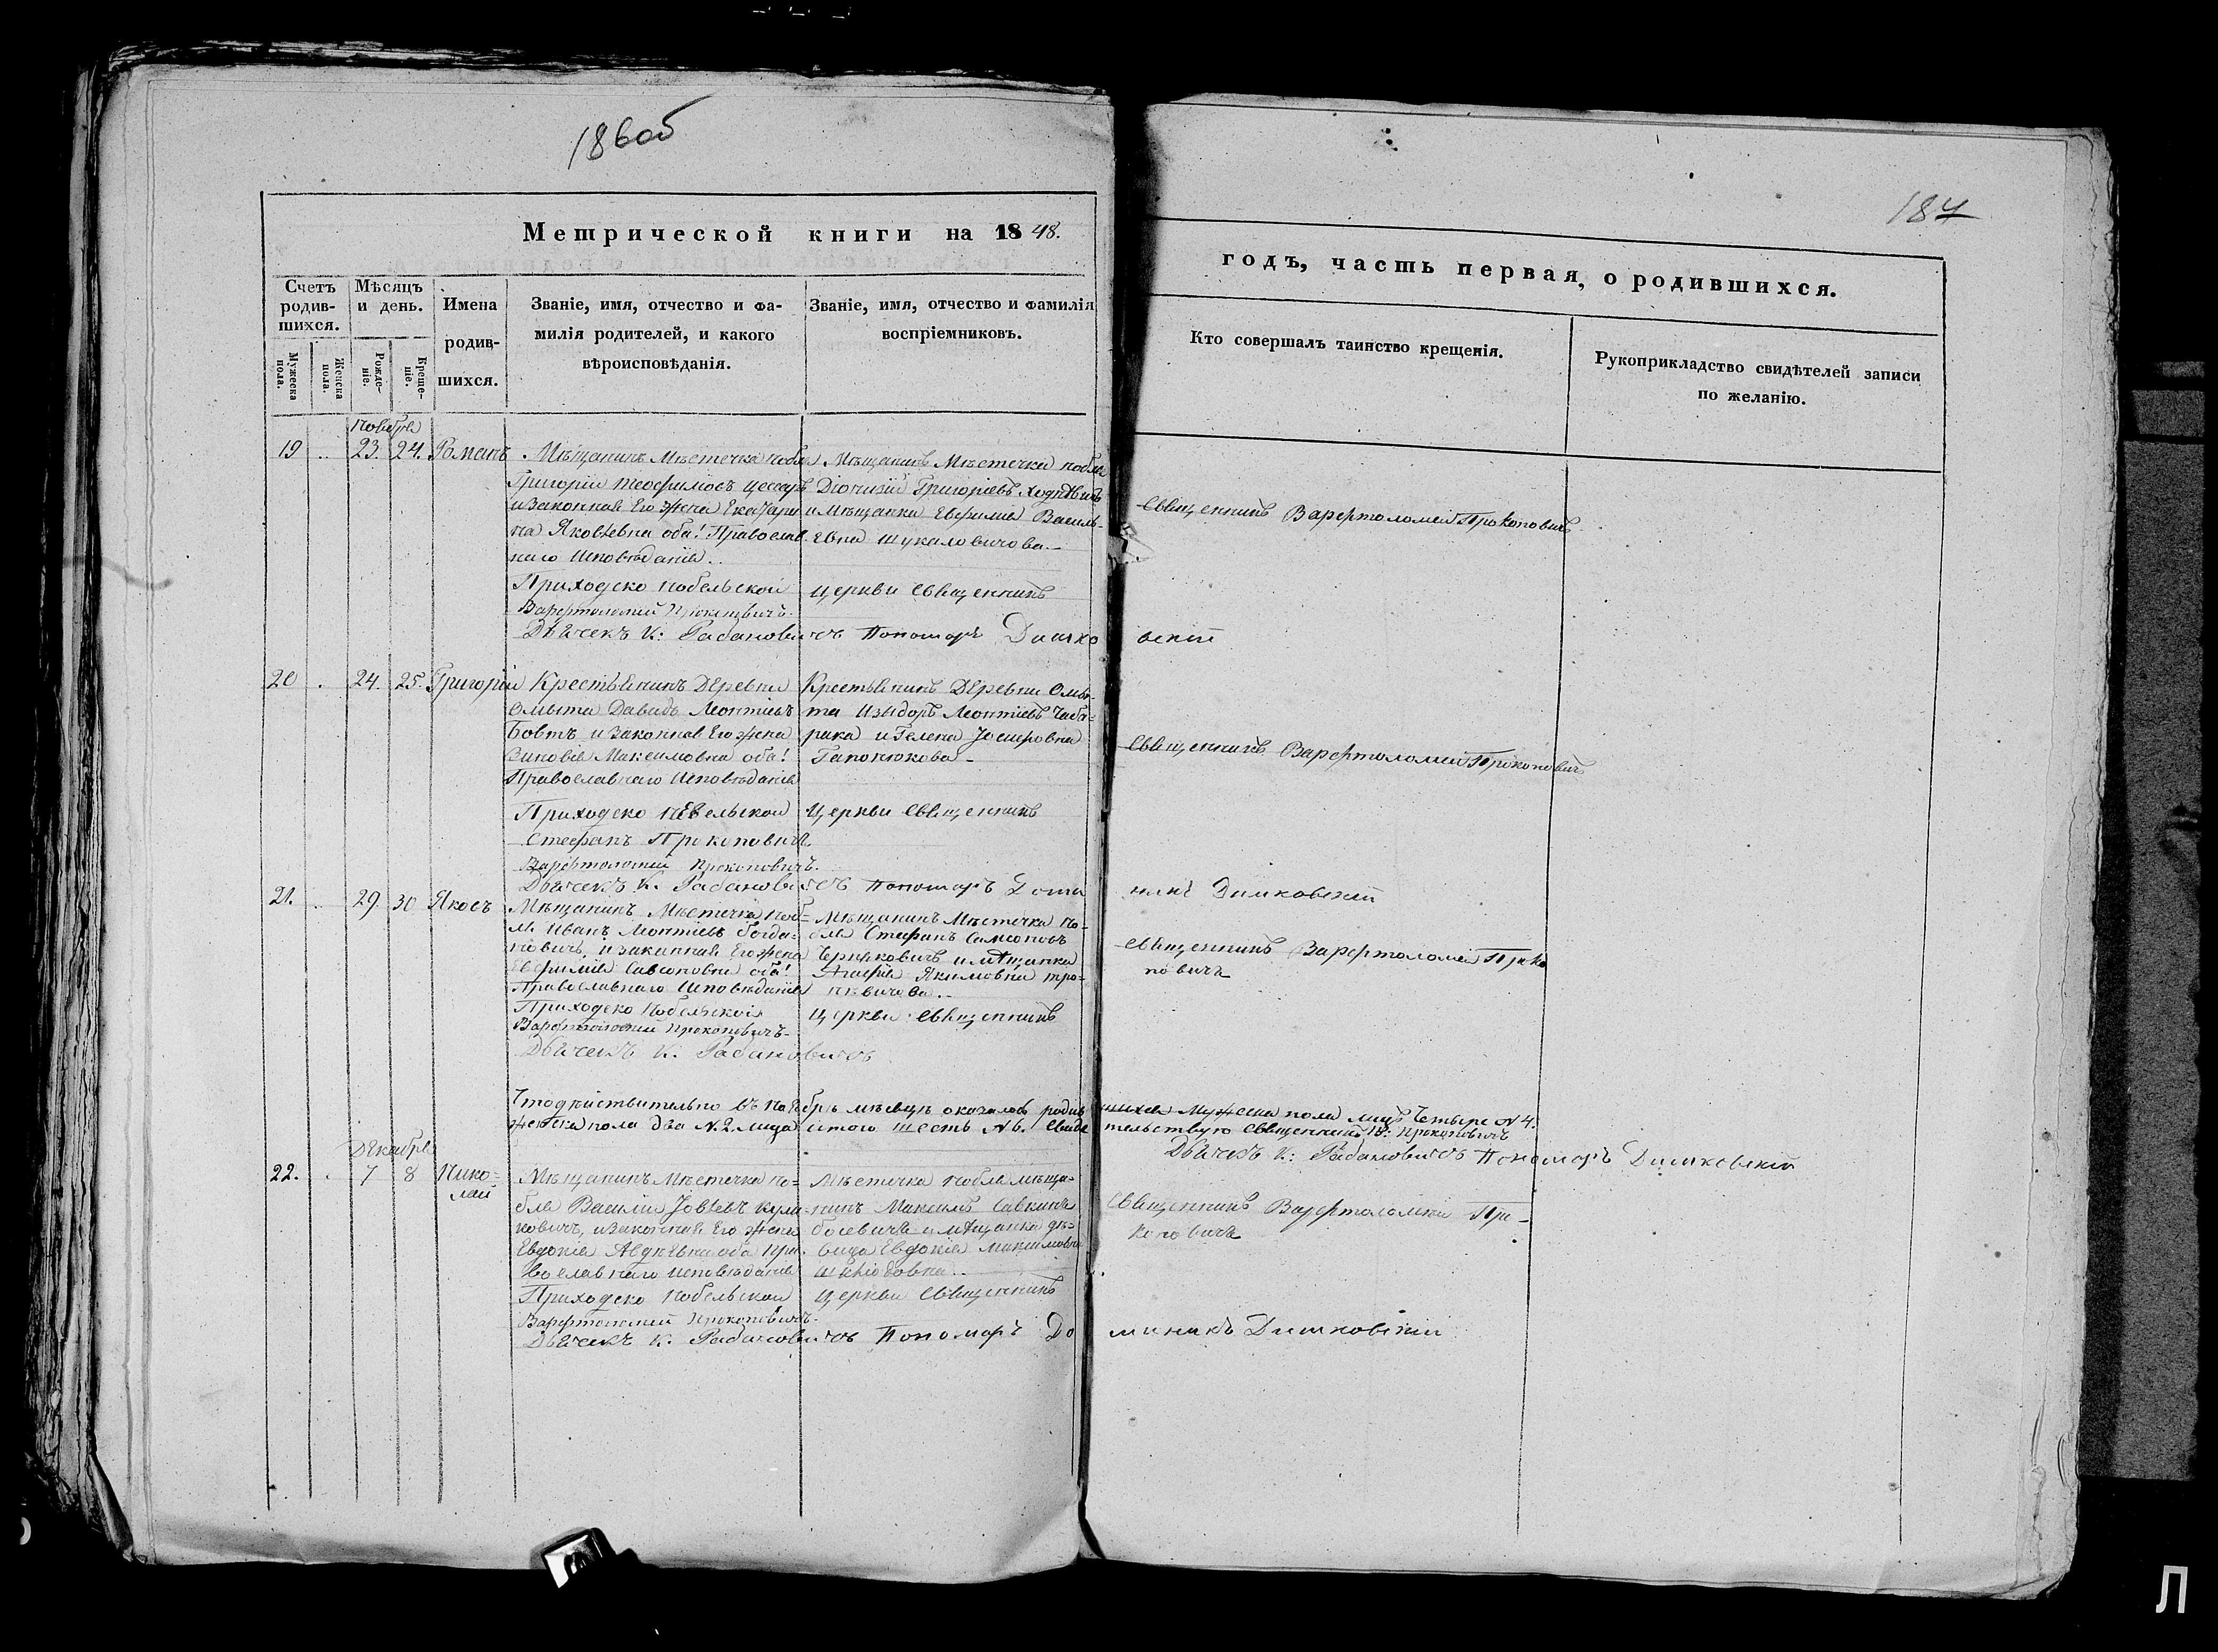 186об
187
Метрической книги на 1848.
годъ, часть первая, о родившихся.
Счетъ родив-шихся.
Мѣсяцъ и день.
Имена родив-шихся.
Званіе, имя, отчество и фа-
милія родителей, и какого
вѣроисповѣданія.
Званіе, имя, отчество и фамилія
воспріемниковъ.
Кто совершалъ таинство крещенія.
Рукоприкладство свидѣтелей записи
по желанію.
Мужеска пола.
Женска пола.
Рожде-ніе.
Креще-ніе.
Ноября
19 23. 24. Романъ
Мѣщанинъ Мѣстечка Нобля
Григорій Теофиловъ
и законная Его жена Екатери
на Яковлевна оба! Православ
наго Исповѣданія.
Мѣщанинъ Мѣстечка Нобля
Діонизій Григоріевъ
и Мѣщанка Евфимія Василь-
евна Шукаловичова
Священникъ Варфоломей Прокоповичъ
Приходско Нобельской Церкви Священникъ
Варфоломей Прокоповичъ.
Дьячекъ К: Рабановичъ Пономарь Димковскій
20 24. 25. Григорій
Крестьянинъ Деревни
Омыта Давидъ Леонтіевъ
Бовтъ и законная Его жена
Зиновія Максимовна оба!
Православнаго Исповѣданія
Крестьянинъ Деревни Омы-
та Изыдоръ Леонтіевъ Чаба-
рака и Гелена Іосифовна
Гапонюкова
Священникъ Варфоломей Прокоповичъ
Приходско Нобельской Церкви Священникъ
Стефанъ Прокоповичъ.
Варфоломей Прокоповичъ.
Дьячекъ К. Рабановичъ Пономарь Доминикъ Димковскій
21. 29 30 Яковъ
Мѣщанинъ Мѣстечка Ноб=
ля Иванъ Леонтіевъ Богда=
новичъ, и законная Его жена
Евфимія Савсоновна оба!
Православнаго Исповѣданія
Мѣщанинъ Мѣстечка Но-
бля Стефанъ Самсоновъ
и мѣщанка
Агафія Якимовна
Священникъ Варфоломей Проко
повичъ
Приходско Нобельской Церкви Священникъ
Варфоломей Прокоповичъ
Дьячекъ К. Рабановичъ
Что дѣйствительно въ Ноябрѣ мѣсяцѣ оказалось родившихся Мужеска пола лицъ Четыре N 4.
женска пола два N. 2. лица итого шесть N 6. свидѣтельствую Священникъ В: Прокоповичъ
Дьячекъ К: Рабановичъ Пономарь Димковскій
Декабря
22. 7 8 Нико=
лай
Мѣщанинъ Мѣстечка Но-
бля Василій Іовлевъ Кули
ковичъ, и законная Его жена
Евдокія Авдѣевна оба Пра
вославнаго Исповѣданія
Мѣстечка Нобля мѣща-
нинъ Максимъ Савкинъ
и мѣщанка дѣ-
вица Евдокія Максимовна
Священникъ Варфоломей Про-
коповичъ
Приходско Нобельской Церкви Священникъ
Варфоломей Прокоповичъ.
Дьячекъ К. Рабановичъ Пономарь Доминикъ Димковскій
Л